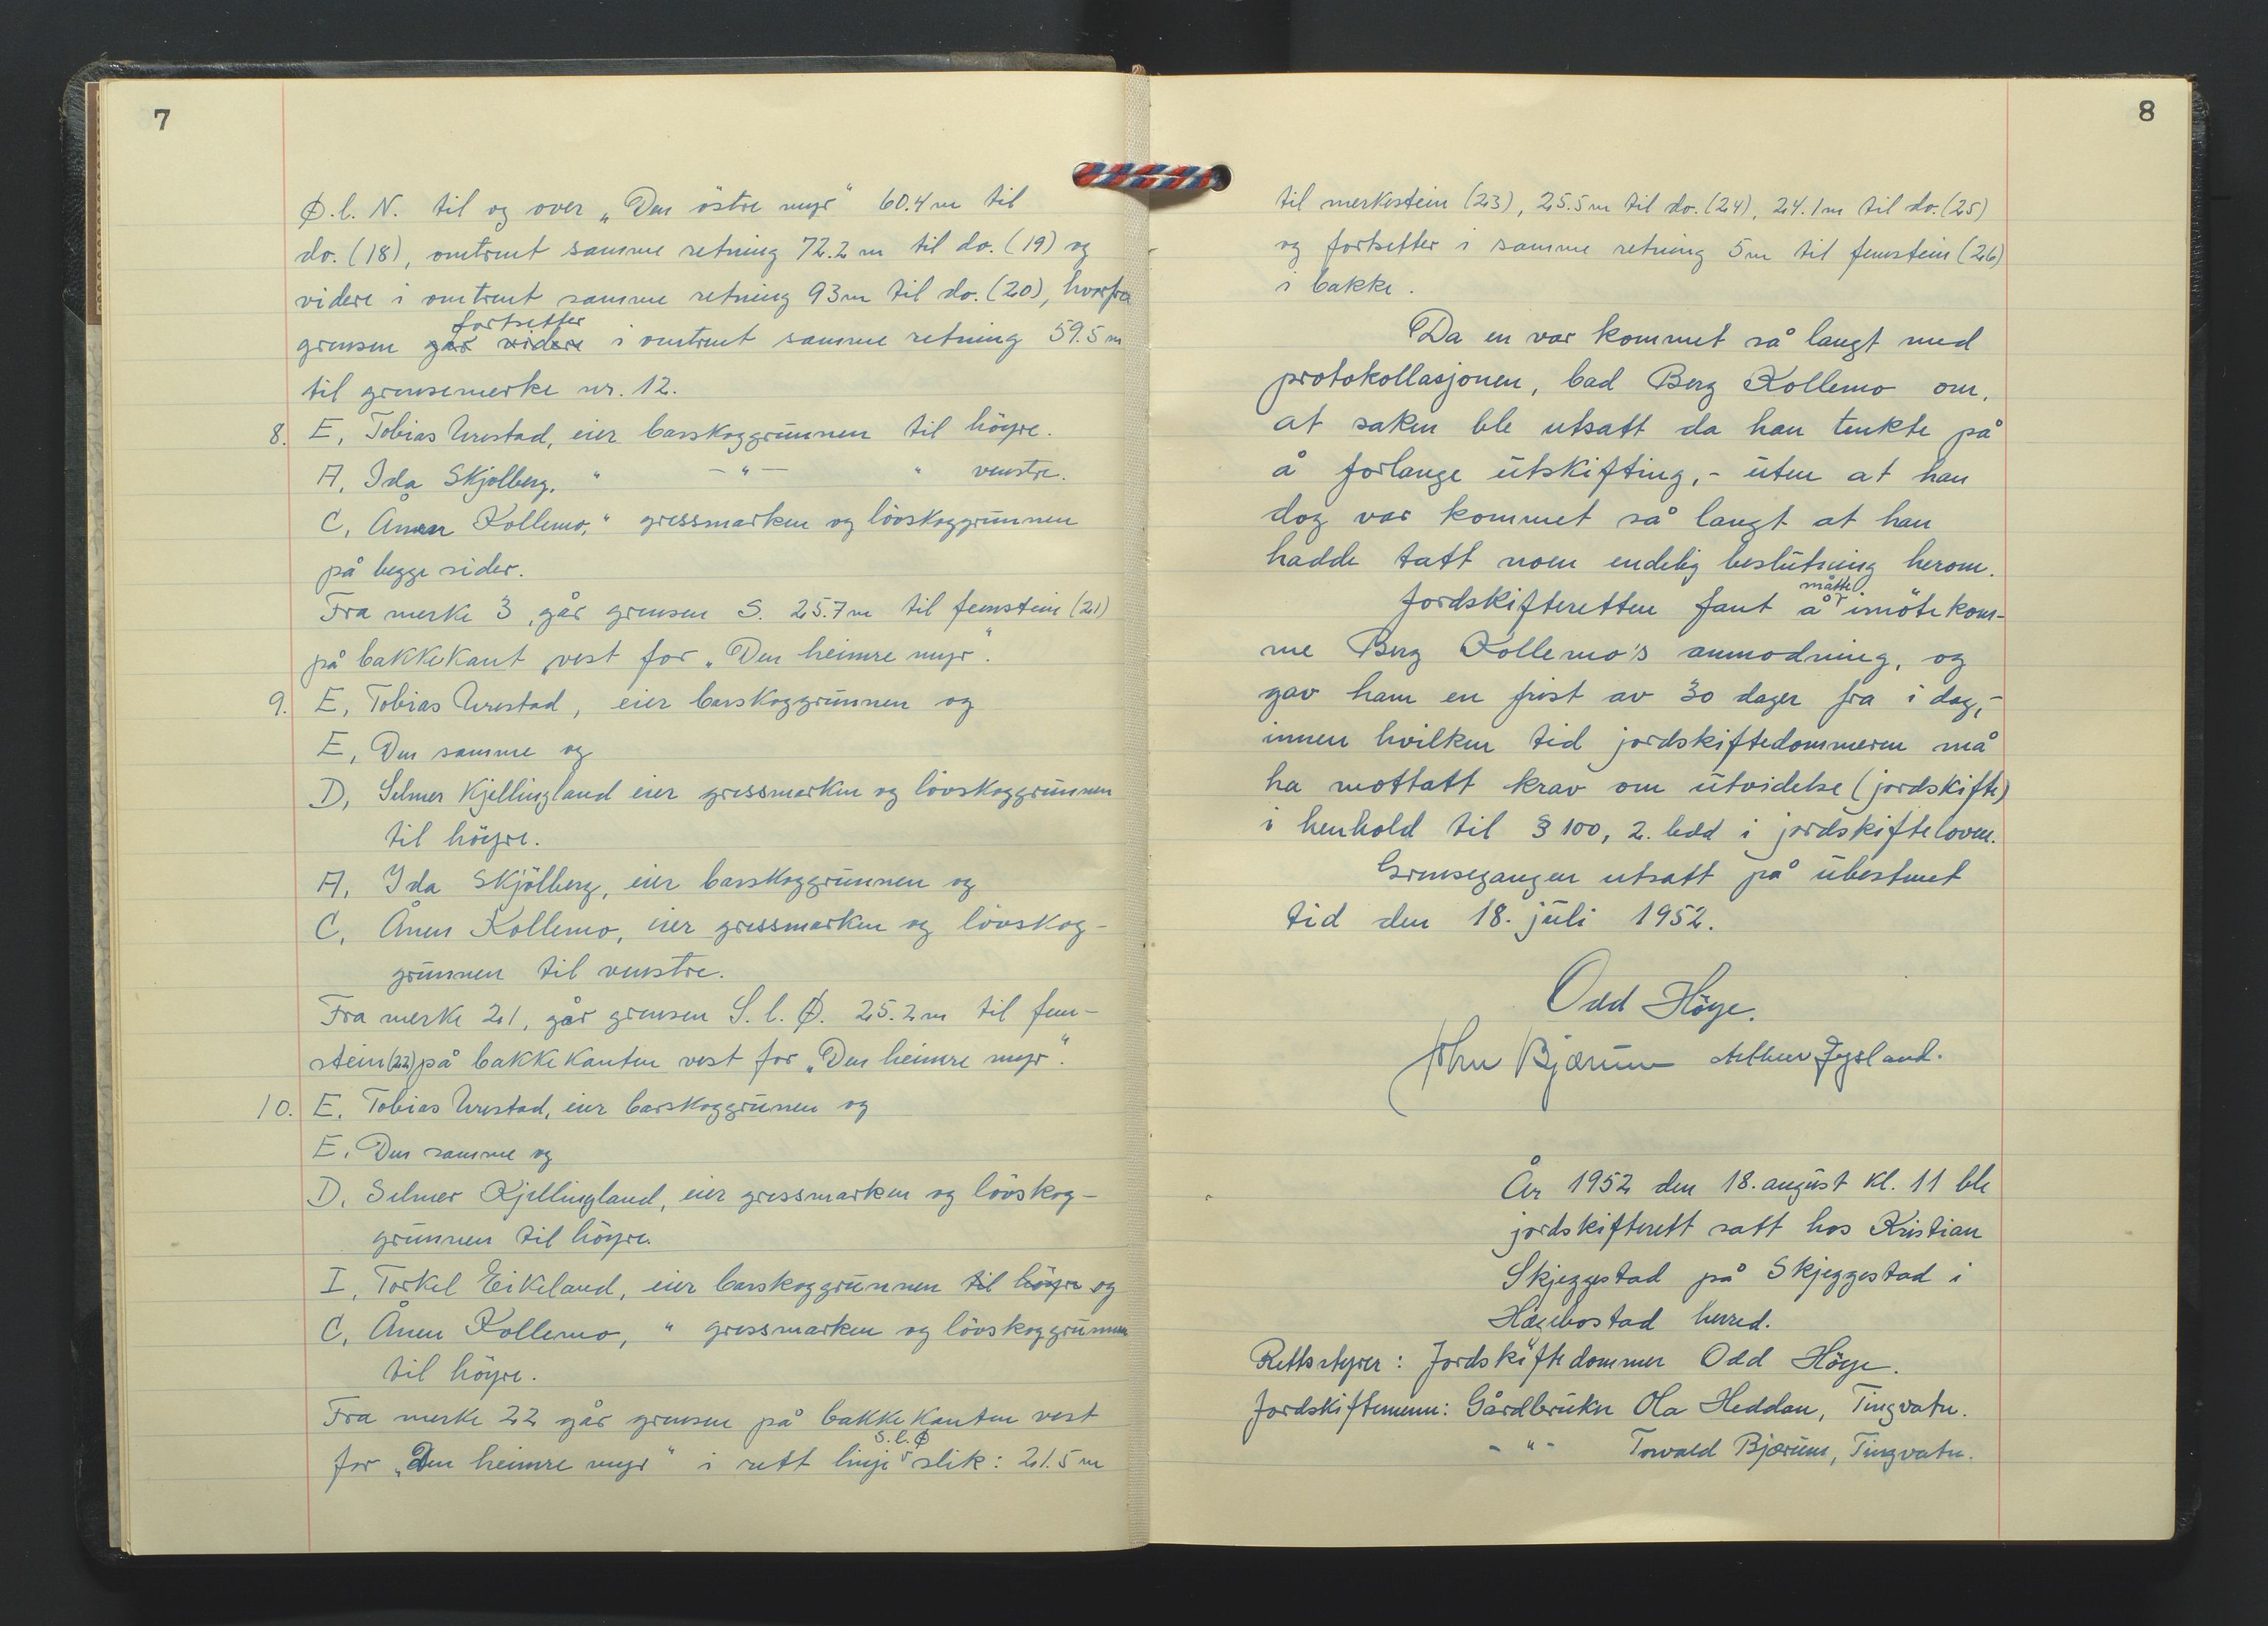 7
Ø.l. N. til og over „Den östre myr" 60.4 m til
do. (18), omtrent samme retning 72.2 m til do. (19) og
videre i omtrent samme retning 93 m til do. (20), hvorfra
fortsetter
grensen går videre i omtrent samme retning 59.5 m
til grensemerke nr. 12.
8. E, Tobias Urestad, eier barskoggrunnen til höyre.
A, Ida Skjölberg, " — " — " venstre.
C, Ånen Kollemo, " gressmarken og lövskoggrunnen
på begge sider.
Fra merke 3, går grensen S. 25.7 m til femstein (21)
på bakkekant, vest for „Den heimre myr".
9. E, Tobias Urestad, eier barskoggrunnen og
E, Den samme og
D, Selmer Kjellingland eier gressmarken og lövskoggrunnen
til höyre.
A, Ida Skjölberg, eier barskoggrunnen og
C, Ånen Kollemo, eier gressmarken og lövskog-
grunnen til venstre.
Fra merke 21, går grensen S. l. Ø. 25.2 m til fem-
stein (22) på bakkekanten vest for „Den heimre myr".
10. E, Tobias Urestad, eier barskoggrunnen og
E. Den samme og
D. Selmer Kjellingland, eier gressmarken og lövskog-
grunnen til höyre.
I, Torkel Eikeland, eier barskoggrunnen til höyre og
C, Ånen Kollemo, " gressmarken og lövskoggrunnen
til höyre.
Fra merke 22 går grensen på bakkekanten vest
S.l.Ø
for „Den heimre myr" i rett linje slik: 21.5 m
8
til merkestein (23), 25.5 m til do. (24), 24.1 m til do. (25)
og fortsetter i samme retning 5 m til femstein (26)
i bakke.
Da en var kommet så langt med
protokollasjonen, bad Berg Kollemo om,
at saken ble utsatt da han tenkte på
å forlange utskifting, - uten at han
dog var kommet så langt at han
hadde tatt noen endelig beslutning herom.
måtte
Jordskifteretten fant å imötekom-
me Berg Kollemo's anmodning, og
gav ham en frist av 30 dager fra i dag,-
innen hvilken tid jordskiftedommeren må
ha mottatt krav om utvidelse (jordskifte)
i henhold til § 100, 2. ledd i jordskifteloven.
Grensegangen utsatt på ubestemt
tid den 18. juli 1952.
Odd Höye.
John Bjærum Arthur Jysland.
År 1952 den 18. august kl. 11 ble
jordskifterett satt hos Kristian
Skjeggestad på Skjeggestad i
Hægebostad herred.
Rettsstyrer: Jordskiftedommer Odd Höye.
Jordskiftemenn: Gårdbruker Ola Heddan, Tingvatn.
- " - Torvald Bjærum, Tingvatn.